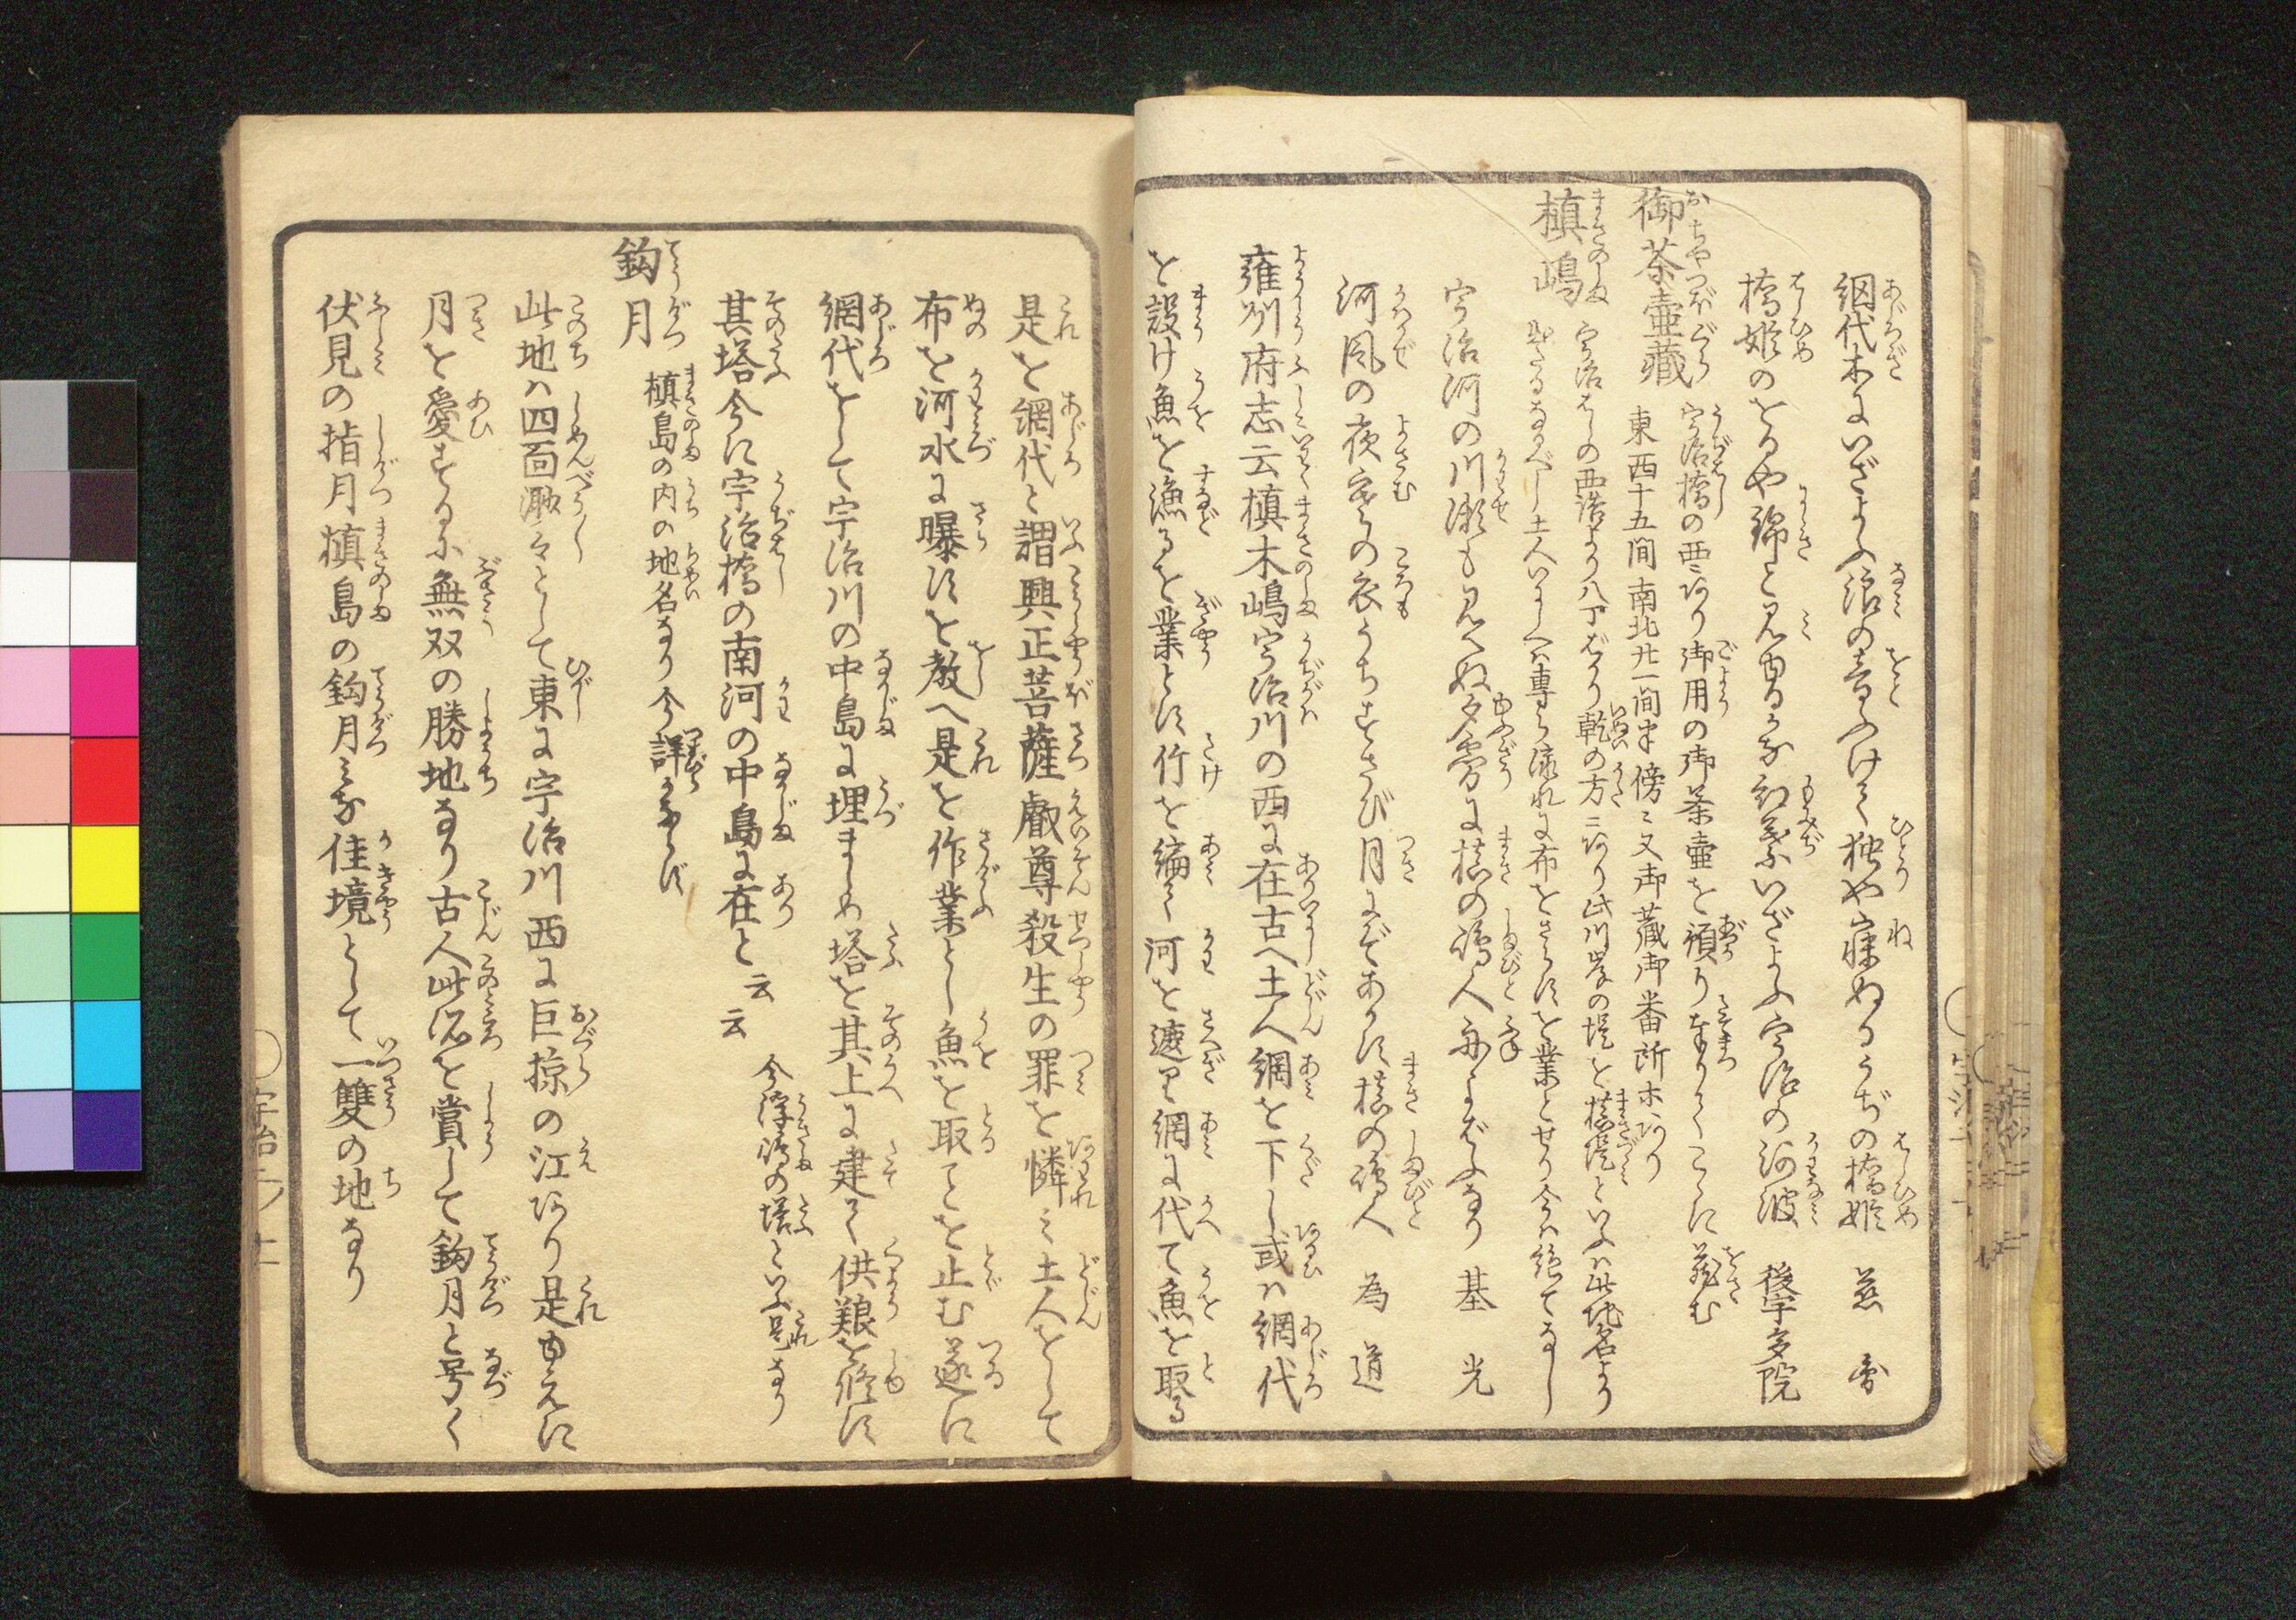 網代木にいざよふ浪の音ふけて独や寐ぬるうぢの橋姫 慈 圓
橋姫のをるや錦と見ゆるかな紅葉いざよふ宇治の河波 後宇多院
御茶壷蔵 宇治橋の西ニあり御用の御茶壷を預り奉りてこゝに蔵む
東西十五間南北廿一間半傍ニ又御蔵御番所ホあり
槙嶋 宇治はしの西詰より八丁ばかり乾の方ニあり此川岸の堤を槙堤といふハ此地名より
出たるなるべし土人いにしへハ専ら流れに布をさらすを業とせり今ハ絶てなし
宇治河の川瀬も見へぬ夕霧に槙の嶋人舟よばふなり 基 光
河風の夜寒の衣うちすさび月にぞあかす槙の嶋人 為 道
雍州府志云槙木嶋宇治川の西に在古へ土人網を下し或ハ網代
を設け魚を漁るを業とす竹を編て河を遮り網に代て魚を取る
是を網代と謂興正菩薩叡尊殺生の罪を憐ミ土人をして
布を河水に曝すを教へ是を作業とし魚を取てを止む遂に
網代をして宇治川の中島に埋ましめ塔を其上に建て供養を修す
其塔今に宇治橋の南河の中島に在と云云 今浮嶋の塔といふ是なり
鈎月 槙島の内の地名なり今詳ならず
此地ハ四面渺々として東に宇治川西に巨椋の江あり是ゆゑに
月を愛するに無双の勝地なり古人此所を賞して鈎月と号く
伏見の指月槙島の鈎月ミな佳境として一雙の地なり
宇治ノ上